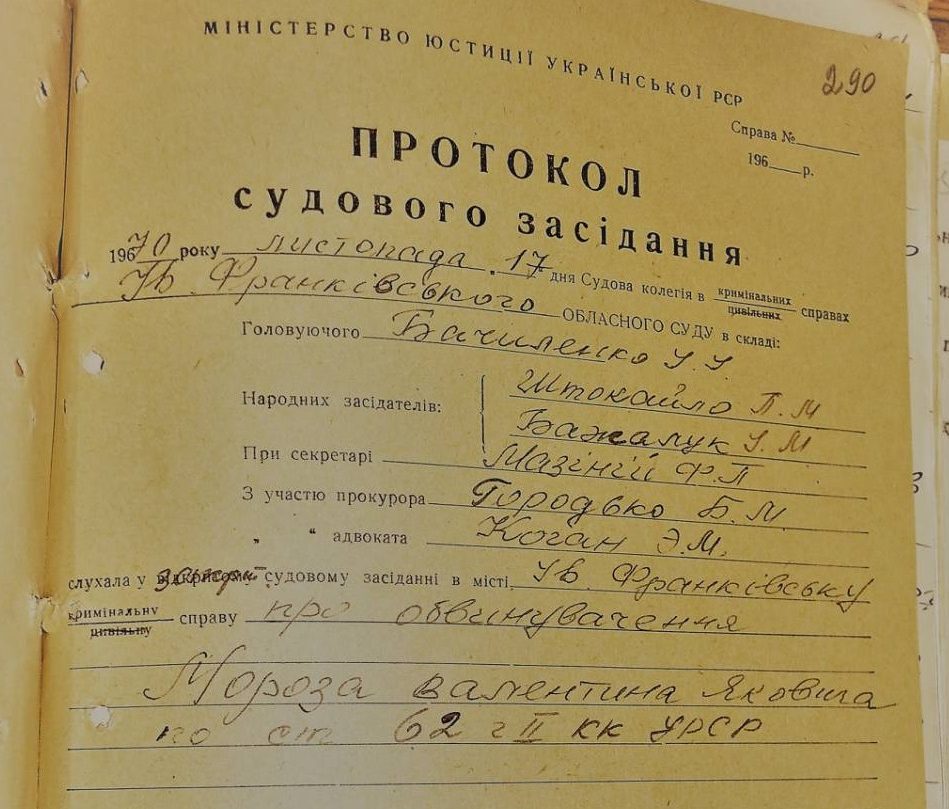 МІНІСТЕРСТВО ЮСТИЦІЇ УКРАЇНСЬКОЇ РСР
290
Справа №
196 р.
ПРОТОКОЛ
судового засідання
19670 року листопада . 17 дня Судова колегія в кримінальних цивільних справах
Ів Франківського ОБЛАСНОГО СУДУ в складі:
Головуючого Бачиленко У У
Народних засідателів: Штокайло П. М
Бажалук У. М
При секретарі Мазіній Ф. П
З участю прокурора Городько Б. М.
„ “ адвоката Коган Э. М.
слухала у відкритому судовому засіданні в місті Ів Франківську
кримінальну цивільну справу про обвинувачення
Мороза Валентина Яковича
по ст 62 ч II КК УРСР